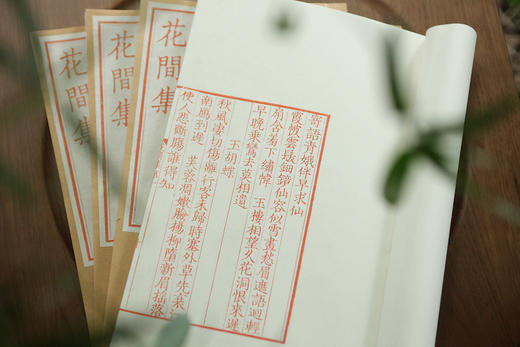 花間集
花間集
花間集
寄語青娥伴早求仙
霞帔雲髮鈿鏡仙容似雪畫愁眉遮語迴輕
扇含羞下繡幃 玉樓相望久花洞恨來遲
早晚乘鸞去莫相遺
玉胡蝶
秋風凄切傷離行客未歸時塞外草先衰江
南鴈到遲 芙蓉凋嫩臉楊柳墮新眉搖落
使人悲斷腸誰得知